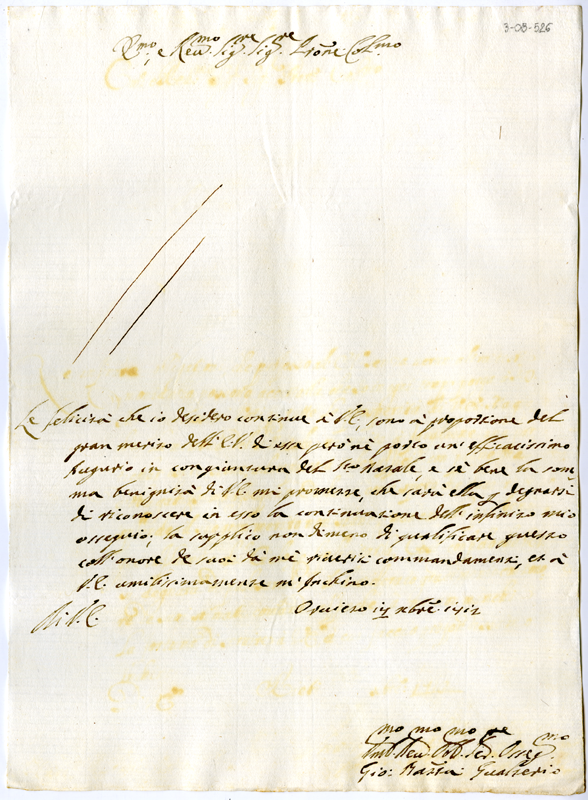 3-08-526
E.mo, e Rev.mo Sig.re Sig.re Prone Col.mo
Le felicità che io desidero continue à V.E, sono à proportione del
gran merito dell' E.V. di esse però nè porto un' efficacissimo
Augurio in congiuntura del S.to Natale, e sè bene la som-
ma benignità di V.E. mi promette, che sarà ella p degnarsi
di riconoscere in esso la continuazione dell' infinito mio
ossequio; la supplico nondimeno di qualificare questo
coll' onore de suoi dà mè riveriti commandamenti, et à
V.E. umilissimamente m' Inchino.
Di V.E. Orvieto
Um.mo Dev.mo Obb.mo Ser.re Osseq.mo
Gio: Batta Gualterio